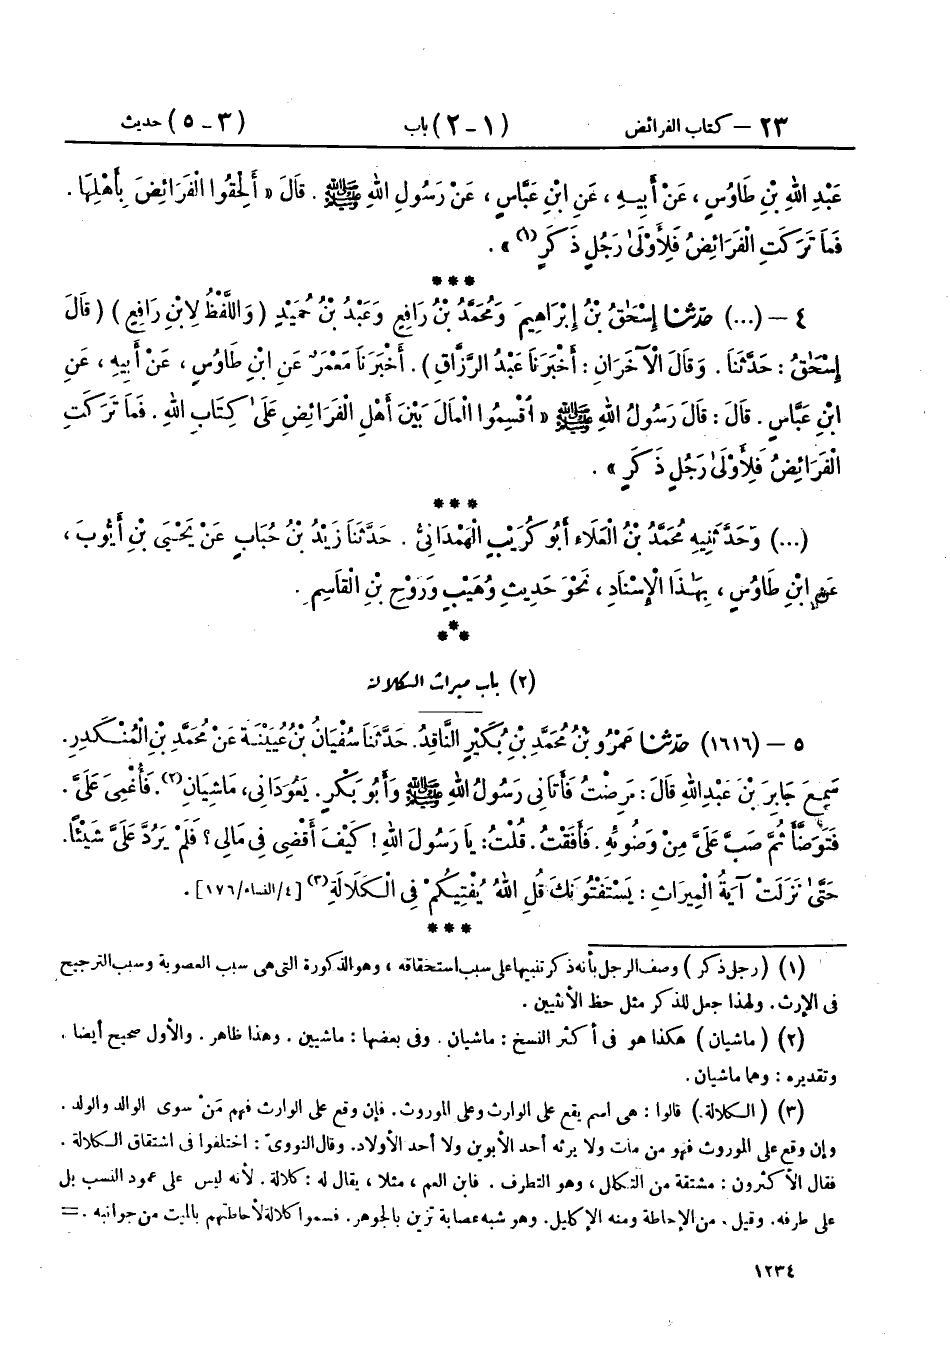 ٢٣ – كتاب الفرائض (١ - ٢) باب (٣ - ٥) حديث
عَبْدِ اللهِ بْنِ طَاوُسٍ ، عَنْ أَبِيهِ ، عَنِ ابْنِ عَبَّاسٍ ، عَنْ رَسُولِ اللهِ ﷺ . قَالَ « أَلْحِقُوا الْفَرَائِضَ بِأَهْلِهَا .
فَمَا تَرَكَتِ الْفَرَائِضُ فَلِأَوْلَىٰ رَجُلٍ ذَكَرٍ (١) » .
***
٤ – (...) حَدَّثَنَا إِسْحَٰقُ بْنُ إِبْرَاهِيمَ وَمُحَمَّدُ بْنُ رَافِعٍ وَعَبْدُ بْنُ حُمَيْدٍ ( وَاللَّفْظُ لِابْنِ رَافِعٍ ) ( قَالَ
إِسْحَٰقُ : حَدَّثَنَا . وَقَالَ الْآخَرَانِ : أَخْبَرَنَا عَبْدُ الرَّزَّاقِ ) . أَخْبَرَنَا مَعْمَرٌ عَنِ ابْنِ طَاوُسٍ ، عَنْ أَبِيهِ ، عَنِ
ابْنِ عَبَّاسٍ . قَالَ : قَالَ رَسُولُ اللهِ ﷺ « اقْسِمُوا الْمَالَ بَيْنَ أَهْلِ الْفَرَائِضِ عَلَىٰ كِتَابِ اللهِ . فَمَا تَرَكَتِ
الْفَرَائِضُ فَلِأَوْلَىٰ رَجُلٍ ذَكَرٍ » .
***
(...) وَحَدَّثَنِيهِ مُحَمَّدُ بْنُ الْعَلَاءِ أَبُو كُرَيْبٍ الْهَمْدَانِيُّ . حَدَّثَنَا زَيْدُ بْنُ حُبَابٍ عَنْ يَحْيَىٰ بْنِ أَيُّوبَ ،
عَنِ ابْنِ طَاوُسٍ ، بِهَٰذَا الْإِسْنَادِ ، نَحْوَ حَدِيثِ وُهَيْبٍ وَرَوْحِ بْنِ الْقَاسِمِ .
***
(٢) باب ميراث الكلالة
٥ – (١٦١٦) حَدَّثَنَا عَمْرُو بْنُ مُحَمَّدِ بْنِ بُكَيْرٍ النَّاقِدُ . حَدَّثَنَا سُفْيَانُ بْنُ عُيَيْنَةَ عَنْ مُحَمَّدِ بْنِ الْمُنْكَدِرِ .
سَمِعَ جَابِرَ بْنَ عَبْدِ اللهِ قَالَ : مَرِضْتُ فَأَتَانِي رَسُولُ اللهِ ﷺ وَأَبُو بَكْرٍ . يَعُودَانِي ، مَاشِيَانِ (٢) . فَأُغْمِيَ عَلَيَّ .
فَتَوَضَّأَ ثُمَّ صَبَّ عَلَيَّ مِنْ وَضُوئِهِ . فَأَفَقْتُ . قُلْتُ : يَا رَسُولَ اللهِ ! كَيْفَ أَقْضِي فِي مَالِي ؟ فَلَمْ يَرُدَّ عَلَيَّ شَيْئًا .
حَتَّىٰ نَزَلَتْ آيَةُ الْمِيرَاثِ : يَسْتَفْتُونَكَ قُلِ اللهُ يُفْتِيكُمْ فِي الْكَلَالَةِ (٣) [ ٤ / النساء / ١٧٦ ] .
***
(١) ( رجل ذكر ) وصف الرجل بأنه ذكر تنبيها على سبب استحقاقه ، وهو الذكورة التى هى سبب العصوبة وسبب الترجيح
فى الإرث . ولهذا جعل للذكر مثل حظ الأنثيين .
(٢) ( ماشيان ) هكذا هو فى أكثر النسخ : ماشيان . وفى بعضها : ماشيين . وهذا ظاهر . والأول صحيح أيضا ،
وتقديره : وهما ماشيان .
(٣) ( الكلالة ) قالوا : هى اسم يقع على الوارث وعلى الموروث . فإن وقع على الوارث فهم مَنْ سوى الوالد والولد .
وإن وقع على الموروث فهو من مات ولا يرثه أحد الأبوين ولا أحد الأولاد . وقال النووىّ : اختلفوا فى اشتقاق الكلالة .
فقال الأكثرون : مشتقة من التكلل ، وهو التطرف . فابن العم ، مثلا ، يقال له : كلالة . لأنه ليس على عمود النسب بل
على طرفه . وقيل . من الإحاطة ومنه الإكليل . وهو شبه عصابة تزين بالجوهر . فسموا كلالة لأحاطتهم بالميت من جوانبه . =
١٢٣٤